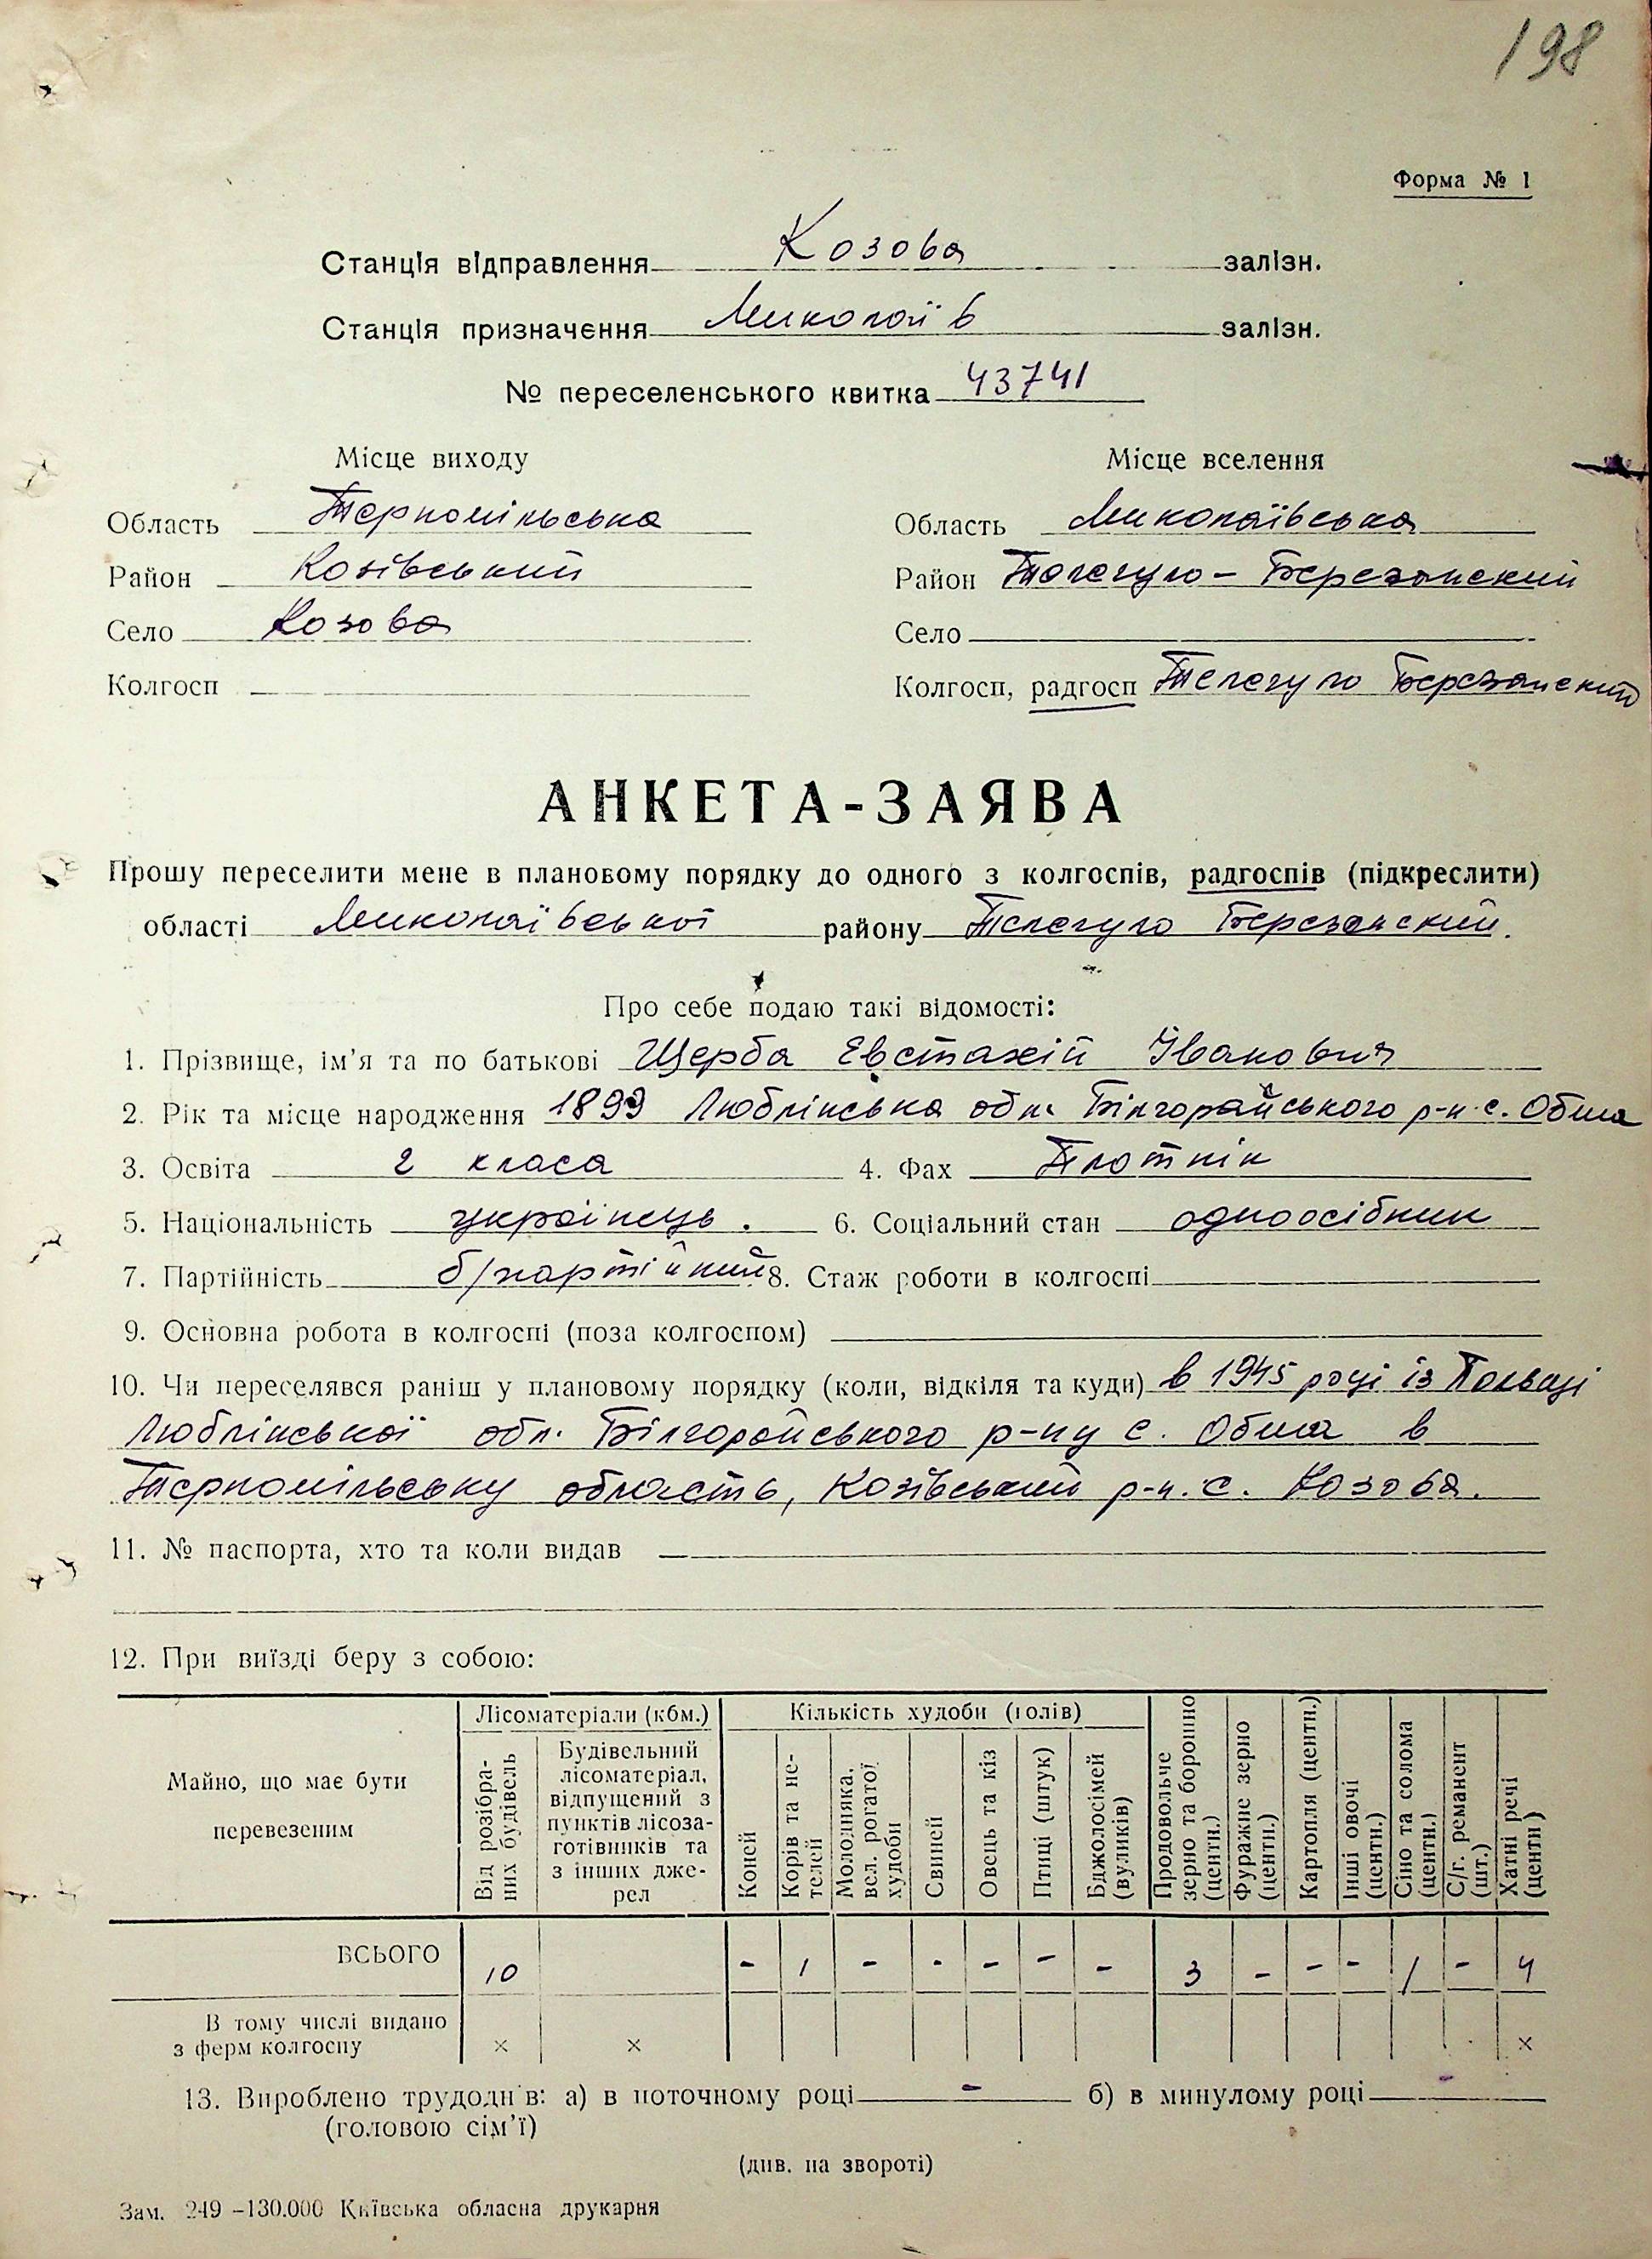 198
Форма № 1
Станція відправлення Козова залізн.
Станція призначення Миколаїв залізн.
№ переселенського квитка 43741
Місце виходу Місце вселення
Область Тернопільська Область Миколаївська
Район Козівський Район Телегуло-Березанский
Село Козова Село
Колгосп — Колгосп, радгосп Телегуло Березанский
АНКЕТА-ЗАЯВА
Прошу переселити мене в плановому порядку до одного з колгоспів, радгоспів (підкреслити)
області Миколаївської району Телегуло Березанский.
Про себе подаю такі відомості:
1. Прізвище, ім’я та по батькові Щерба Евстахій Іванович
2. Рік та місце народження 1899 Люблінська обл. Білгорайського р-н. с. Обша
3. Освіта 2 класа 4. Фах Плотнік
5. Національність українець. 6. Соціальний стан одноосібник
7. Партійність б/партійний 8. Стаж роботи в колгоспі
9. Основна робота в колгоспі (поза колгоспом)
10. Чи переселявся раніш у плановому порядку (коли, відкіля та куди) в 1945 році із Польщі
Люблінської обл. Білгорайського р-ну с. Обша в
Тернопільську область, Козівський р-н. с. Козова.
11. № паспорта, хто та коли видав —
12. При виїзді беру з собою:
Майно, що має бути перевезеним
Лісоматеріали (кбм.)
Від розібраних будівель
Будівельний лісоматеріал, відпущений з пунктів лісозаготівників та з інших джерел
Кількість худоби (голів)
Коней
Корів та нетелей
Молодняка, вел. рогатої худоби
Свиней
Овець та кіз
Птиці (штук)
Бджолосімей (вуликів)
Продовольче зерно та борошно (центн.)
Фуражне зерно (центн.)
Картопля (центн.)
Інші овочі (центн.)
Сіно та солома (центн.)
С/г. реманент (шт.)
Хатні речі (центн)
ВСЬОГО 10 - 1 - - - - - 3 - - - 1 - 4
В тому числі видано
з ферм колгоспу × × ×
13. Вироблено трудоднів: а) в поточному році - б) в минулому році -
(головою сім’ї)
(див. на звороті)
Зам. 249 –130.000 Київська обласна друкарня